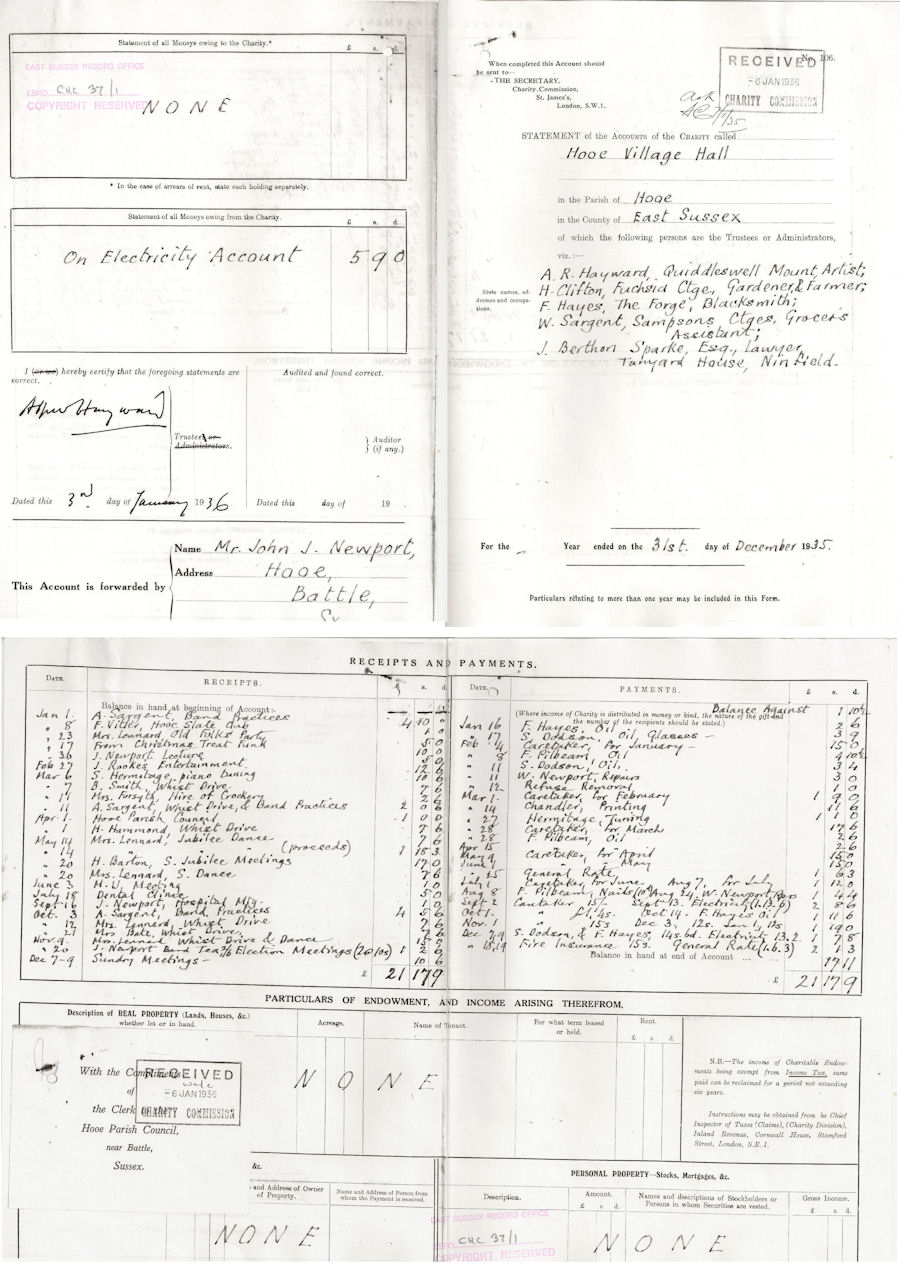 Statement of all Moneys owing to the Charity.*
£ s. d.
EAST SUSSEX RECORD OFFICE
ESRO CHC 37/1
COPYRIGHT RESERVED
NONE
* In the case of arrears of rent, state each holding separately.
Statement of all Moneys owing from the Charity.
£ s. d.
On Electricity Account 5 9 0
I (or we) hereby certify that the foregoing statements are
correct.
Audited and found correct.
Trustee or
Administrators.
} Auditor
} (if any.)
Dated this 3rd day of January 1936
Dated this day of 19
This Account is forwarded by
Name Mr. John J. Newport,
Address Hooe,
Battle,
When completed this Account should
be sent to—
THE SECRETARY,
Charity Commission,
St. James's,
London, S.W.1.
No. 106.
RECEIVED
-6 JAN 1936
CHARITY COMMISSION
STATEMENT of the Accounts of the CHARITY called
Hooe Village Hall
in the Parish of Hooe
in the County of East Sussex
of which the following persons are the Trustees or Administrators,
viz. :—
State names, ad-
dresses and occupa-
tions.
A. R. Hayward, Quiddleswell Mount, Artist;
H. Clifton, Fuchsia Ctge, Gardener & Farmer;
F. Hayes, The Forge, Blacksmith;
W. Sargent, Sampsons Ctges, Grocer's
Assistant;
J. Berthon Sparke, Esq., Lawyer,
Tanyard House, Ninfield.
For the Year ended on the 31st. day of December 1935.
Particulars relating to more than one year may be included in this Form.
RECEIPTS AND PAYMENTS.
DATE. RECEIPTS. £ s. d.
Balance in hand at beginning of Account :-
Jan 1. A. Sargent, Band Practices
" 8 F. Vitler, Hooe Slate Club 4 10 "
" 23 Mrs. Lennard, Old Folks' Party
" 17 From Christmas Treat Funk 5 0
" 30 J. Newport Lecture 10 0
Feb 27 J. Rookes Entertainment
Mar 6 S. Hermitage, piano tuning
" 7 B. Smith, Whist Drive 7 6
" 11 Mrs. Forsyth, Hire of Crockery 2 6
A. Sargent, Whist Drive, & Band Practices 2 0 6
Apr. 1. Hooe Parish Council 1 0 0
" 1 H. Hammond, Whist Drive 7 6
May 14 Mrs. Lennard, Jubilee Dance 7 6
" 14 " " (proceeds) 1 18 3
" 20 H. Barton, S. Jubilee Meetings 17 0
" 20 Mrs. Lennard, S. Dance 7 6
June 3 H.U. Meeting 1 0
July 18 Dental Clinic 5 0
Sept 16 J. Newport, Hospital Mtg. 1 0
Oct. 3 A. Sargent, Band Practices 4 5 6
" 12 Mrs. Lennard, Whist Drive 7 6
" 21 Mrs. Bate, Whist Drive 7 6
Nov. 9. Mrs. Lennard Whist Drive & Dance
" 20 J. Newport Election Meetings
Dec 7-9 Sundry Meetings 10 6
£ 21 17 9
DATE. PAYMENTS. £ s. d.
Balance Against 1 10½
(Where income of Charity is distributed in money or kind, the nature of the gift and
the number of the recipients should be stated.)
Jan 16 F. Hayes, Oil 2 6
" 17 S. Dodson, Oil, Glasses 3 9
Feb 4 Caretaker, for January 15 0
" 8 F. Pilbeam, Oil 4 10½
" 11 S. Dodson, Oil,
" 11 W. Newport, Repairs 3 0
" 12 Refuse Removal 1 0
Mar 1. Caretaker, for February
" 14 Chandler, Printing 11 6
" 27 Hermitage, Tuning
" 28 Caretaker, for March 17 6
" 28 F. Pilbeam, Oil 2 6
Apr 15
May 9 Caretaker, for April 15 0
June 1 " " May 15 0
" 25 General Rate, 1 6 3
July 1 Caretaker for June. Aug 7, for July 1 12 0
Aug 8 F. Pilbeam, Nails (10d) Aug 24, W. Newport, Reprs 4 4
Sept 2 Caretaker 15/- Sept 13. Electricity
Oct 1. " £1,4s. Oct 14. F. Hayes Oil 1 11 6
Nov. 1 " 15s Dec 3, 12s. Jan 1, 1 19 0
Dec 7, 9 S. Dodson, & F. Hayes, Electricity 13.2 1 7 8
" 18, 19 Fire Insurance 15s. General Rate (1.6.3) 2 1 3
Balance in hand at end of Account ... ... 17 11
£ 21 17 9
PARTICULARS OF ENDOWMENT, AND INCOME ARISING THEREFROM.
Description of REAL PROPERTY (Lands, Houses, &c.)
whether let or in hand.
Acreage.
Name of Tenant.
For what term leased
or held.
Rent.
£ s. d.
NONE
N.B.—The income of Charitable Endow-
ments being exempt from Income Tax, sums
paid can be reclaimed for a period not exceeding
six years.
Instructions may be obtained from he Chief
Inspector of Taxes (Claims), (Charity Division),
Inland Revenue, Cornwall House, Stamford
Street, London, S.E.1.
With the Compliments
of
the Clerk
Hooe Parish Council,
near Battle,
Sussex.
RECEIVED
-6 JAN 1936
CHARITY COMMISSION
&c.
and Address of Owner
of Property.
Name and Address of Person from
whom the Payment is received.
NONE
PERSONAL PROPERTY—Stocks, Mortgages, &c.
Description.
Amount.
£ s. d.
Names and descriptions of Stockholders or
Persons in whom Securities are vested.
Gross Income.
£ s. d.
EAST SUSSEX RECORD OFFICE
ESRO CHC 37/1
COPYRIGHT RESERVED
NONE